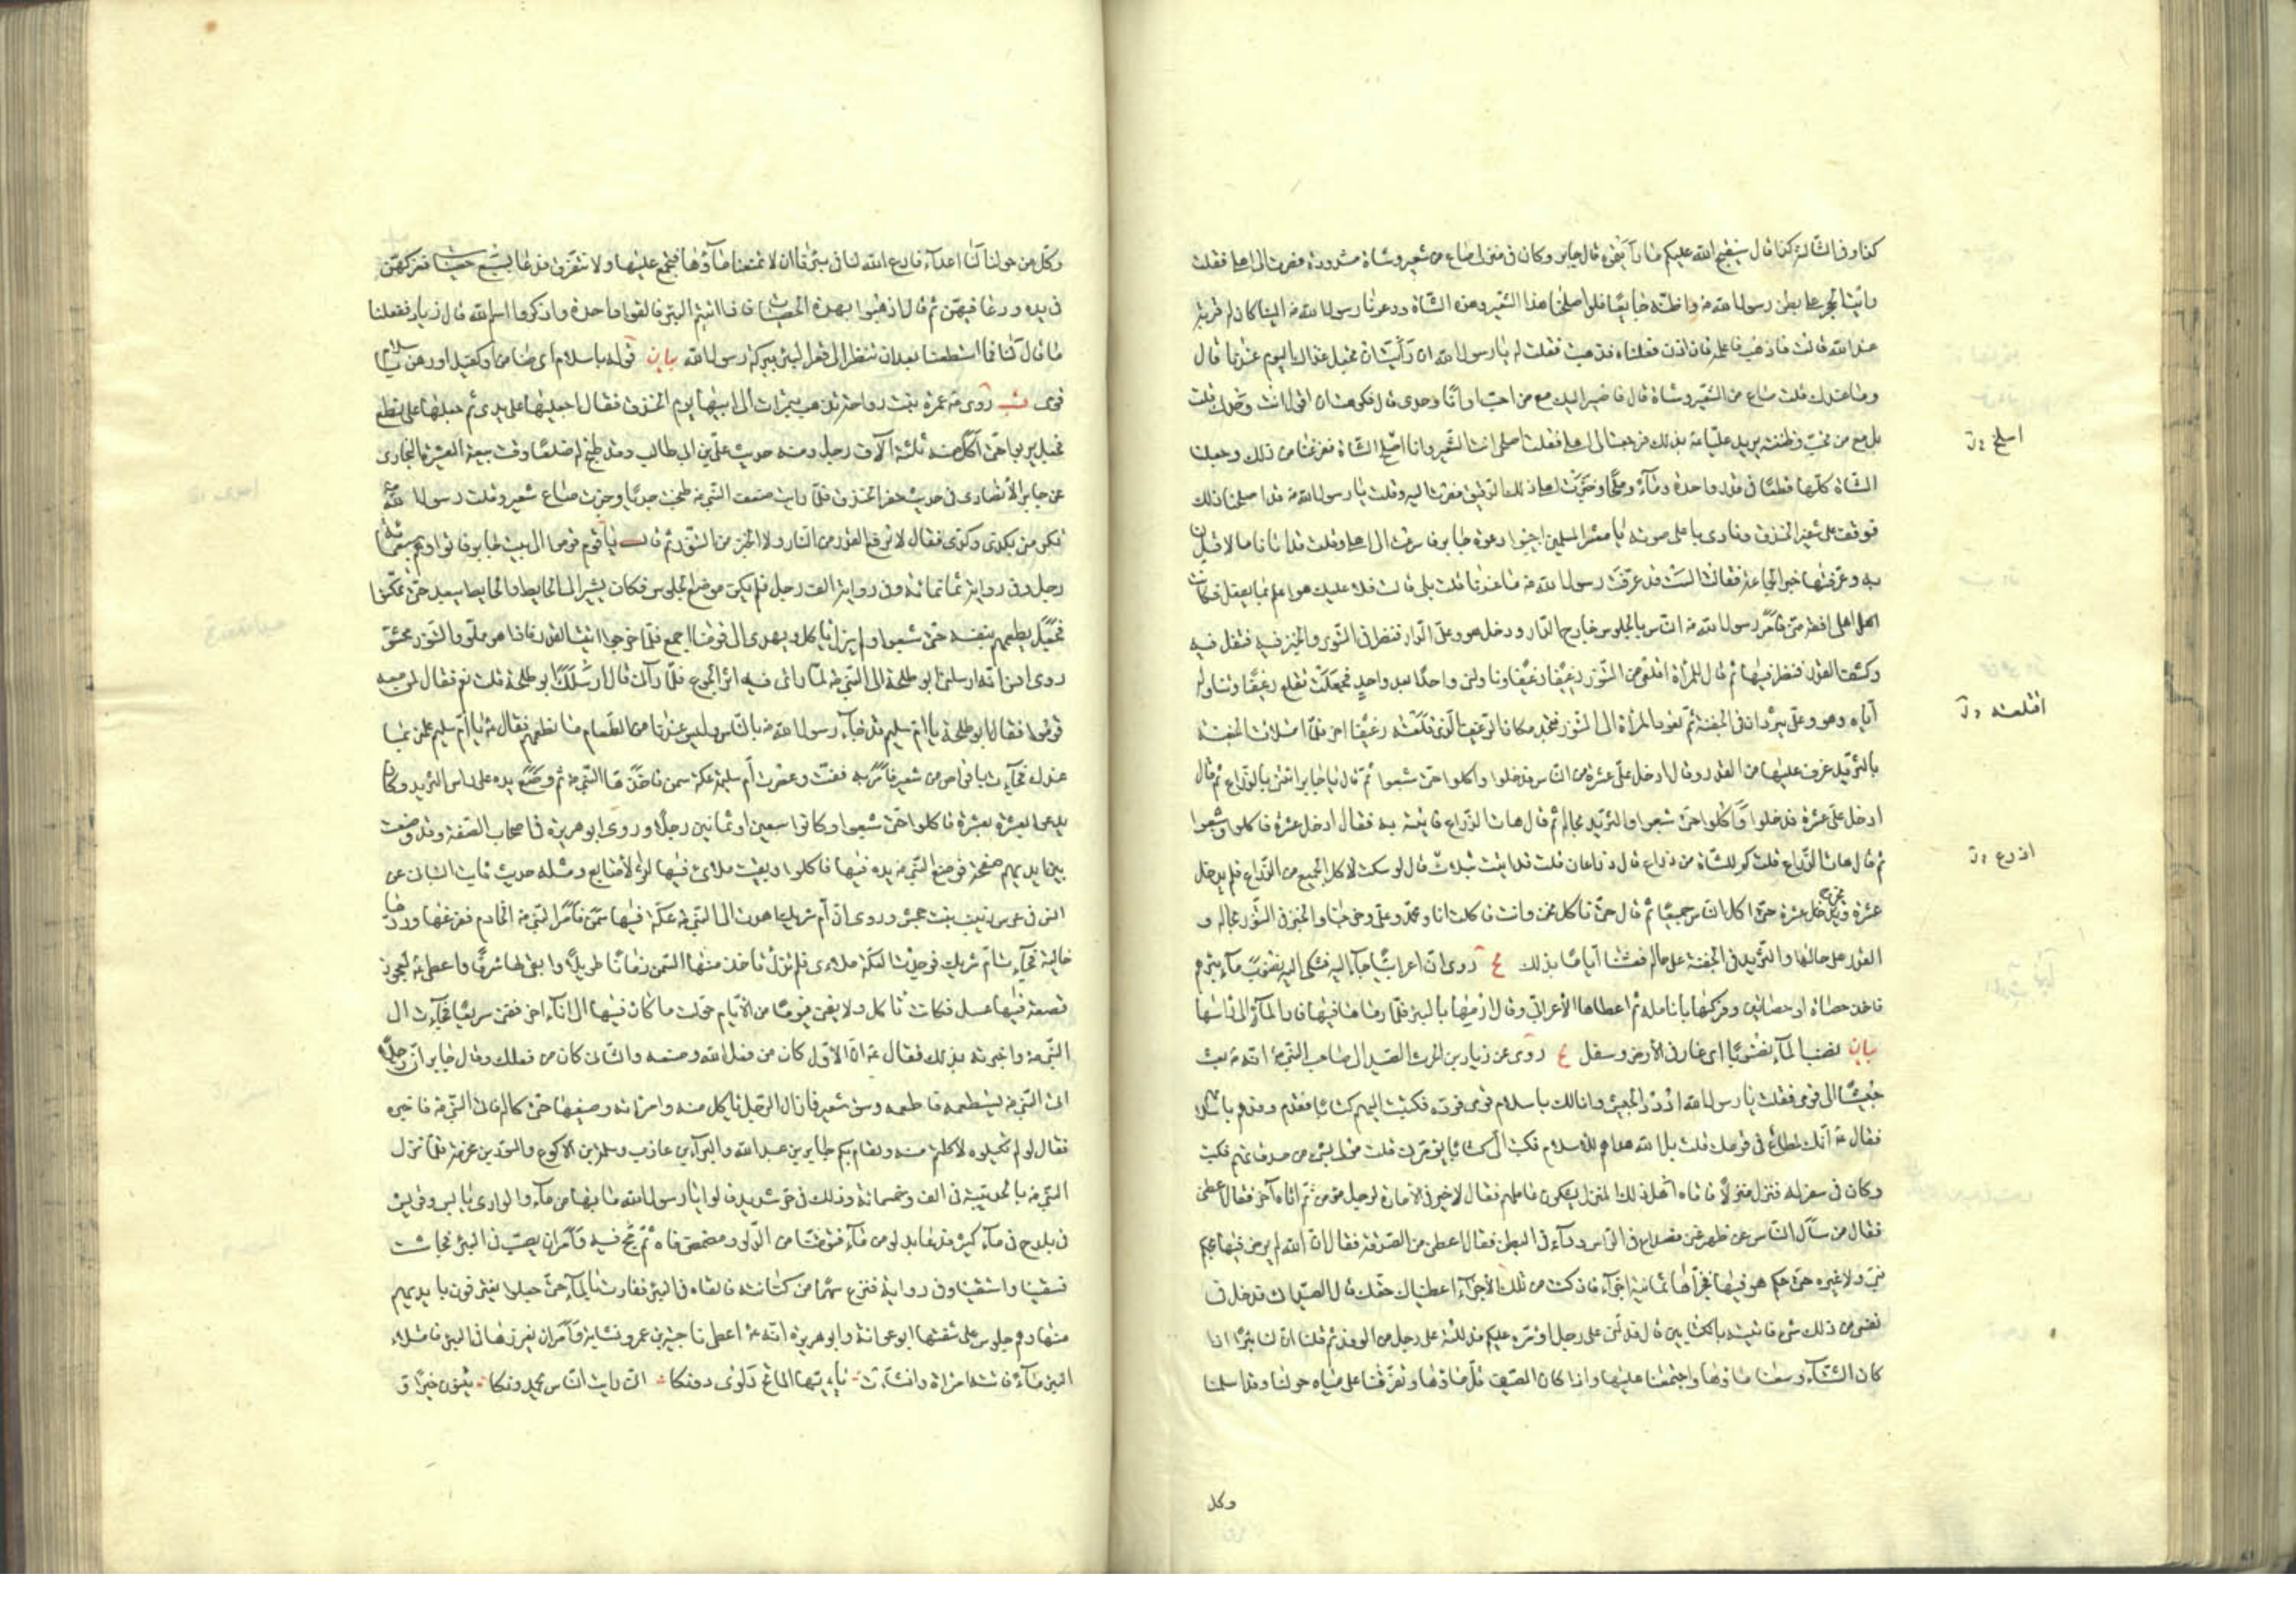 كذا وفي الثالثة كذا قال سيفتح الله عليكم ما رأيتموه قال جابر وكان في منزلي صاع من شعير وشاة مشدودة فصرت إلى أهلي فقلت
رأيت الحجر على بطن رسول الله ص وأظنه جائعا فلو أصلحنا هذا الشعير وهذه الشاة ودعونا رسول الله ص إلينا كان لنا قربة
عند الله قالت فاذهب فأعلمه فإن أذن فعلناه فذهبت فقلت له يا رسول الله ان رأيت ان تجعل غداك اليوم عندنا قال
وما عندك قلت صاع من الشعير وشاة قال فأصير إليك مع من احب أو أنا وحدي قال فكرهت ان أقول أنت وحدك قلت
بل مع من تحب وظننته يريد عليا ع بذلك فرجعت إلى أهلي فقلت أصلحي أنت الشعير وانا أصلح الشاة ففرغنا من ذلك وجعلنا
الشاة كلها قطعا في قدر واحدة وماء وملحا وخبزت أهلي ذلك الدقيق فصرت إليه وقلت يا رسول الله ص قد أصلحنا ذلك
فوقف على شفير الخندق ونادى بأعلى صوته يا معشر المسلمين أجيبوا دعوة جابر فأسرعت إلى أهلي وقلت قد أتانا ما لا قبل لنا
به وعرفتها خبر الجماعة فقالت ألست قد عرفت رسول الله ص ما عندنا قلت بلى قالت فلا عليك هو اعلم بما يفعل فكانت
أهلي أفقه مني فأمر رسول الله ص الناس بالجلوس خارج الدار ودخل هو وعلي الدار فنظر في التنور والخبز فيه فتفل فيه
وكشف القدر فنظر فيها ثم قال للمرأة اقلعي من التنور رغيفا رغيفا وناوليني واحدا بعد واحد فجعلت تقلع رغيفا وتناوله
إياه وهو وعلي يثردان في الجفنة ثم تعود المرأة إلى التنور فتجد مكان الرغيف الذي قلعته رغيفا اخر فلما امتلأت الجفنة
بالثريد غرف عليها من القدر وقال ادخل علي عشرة من الناس فدخلوا وأكلوا حتى شبعوا ثم قال يا جابر ائتني بالذراع ثم قال
ادخل علي عشرة فدخلوا وأكلوا حتى شبعوا والثريد بحاله ثم قال هات الذراع فأتيته به فقال ادخل عشرة فأكلوا وشبعوا
ثم قال هات الذراع قلت كم للشاة من ذراع قال ذراعان قلت قد أتيت بثلاث قال لو سكت لأكل الجميع من الذراع فلم يزل يدخل
عشرة ويخرج عشرة حتى اكل الناس جميعا ثم قال حتى نأكل نحن وأنت فأكلت انا ومحمد وعلي وخرجنا والخبز في التنور بحاله و
القدر على حالها والثريد في الجفنة على حاله فعشنا أياما بذلك يج روي ان أعرابيا جاء إليه فشكى إليه نضوب ماء بئرهم
فأخذ حصاة أو حصاتين وفركها بأنامله ثم أعطاها الأعرابي وقال ارمها بالبئر فلما رماها فيها فار الماء إلى رأسها
بيان نضب الماء نضوبا أي غار في الأرض وسفل يج روي عن زياد بن الحرث الصيداني صاحب النبي ص انه ص بعث
جيشا إلى قومي فقلت يا رسول الله اردد الجيش وانا لك بإسلام قومي فرده فكتبت إليهم كتابا فقدم وفدهم بإسلامهم
فقال ص انك لمطاع في قومك قلت بل الله هداهم للاسلام فكتب إلي كتابا يؤمرني قلت مر لي بشيء من صدقاتهم فكتب
وكان في سفر له فنزل منزلا فأتاه أهل ذلك المنزل يشكون عاملهم فقال لا خير في الامارة لرجل مؤمن ثم أتاه آخر فقال أعطني
فقال من سأل الناس عن ظهر غنى فصداع في الرأس وداء في البطن فقال أعطني من الصدقة فقال ان الله لم يرض فيها بحكم
نبي ولا غيره حتى حكم هو فيها فجزأها ثمانية أجزاء فإن كنت من تلك الأجزاء أعطيناك حقك قال الصيداني فدخل في
نفسي من ذلك شيء فأتيته بالكتابين قال فدلني على رجل أؤمره عليكم فدللته على رجل من الوفد ثم قلنا ان لنا بئرا إذا
كان الشتاء وسعنا ماؤها واجتمعنا عليها وإذا كان الصيف قل ماؤها وتفرقنا على مياه حولنا وقد أسلمنا
وكل
اسلخ خ ل
اقتلعته خ ل
اذرع خ ل
وكل من حولنا لنا أعداء فادع الله لنا في بئرنا ان لا تمنعنا ماؤها فنجتمع عليها ولا نتفرق فدعا بسبع حصيات ففركهن
في يده ودعا فيهن ثم قال اذهبوا بهذه الحصيات فإذا أتيتم البئر فالقوا واحدة واحدة واذكروا اسم الله قال زياد ففعلنا
ما قال لنا فما استطعنا بعد ان ننظر إلى قعر البئر ببركة رسول الله بيان قوله بإسلام أي ضامن وكفيل أو رهن بإسلام
قومي قب روي ص عمرة بنت رواحة تذهب بتمرات إلى أبيها يوم الخندق فقال اجعليها على يدي ثم جعلها على نطع
فجعل يربو حتى اكل منه ثلثة آلاف رجل ومنه حديث علي بن أبي طالب وقد طبخ له ضلعا وقت بيعة العشيرة البخاري
عن جابر الأنصاري في حديث حفر الخندق فلما رأيت ضعف النبي ص طبخت جديا وخبزت صاع شعير وقلت رسول الله
تكرمني بكذى وكذى فقال لا ترفع القدر من النار ولا الخبز من التنور ثم قال يا قوم قوموا إلى بيت جابر فأتوا وهم سبعمائة
رجل وفي رواية ثمانمائة وفي رواية ألف رجل فلم يكن موضع الجلوس فكان يشير إلى الحايط والحايط يبعد حتى تمكنوا
فجعل يطعمهم بنفسه حتى شبعوا ولم يزل يأكل ويهدي إلى قومنا أجمع فلما خرجوا أتيت القدر فإذا هو مملو والتنور محشو
روى انس انه أرسلني أبو طلحة إلى النبي ص لما رأى فيه أثر الجوع فلما رآني قال أرسلك أبو طلحة قلت نعم فقال لمن معه
قوموا فقال أبو طلحة يا أم سليم قد جاء رسول الله ص بالناس وليس عندنا من الطعام ما نطعمهم فقال ص يا أم سليم هلمي بما
عندك فجاءت بأقراص من شعير فأمر به ففت وعصرت أم سليم عكة سمن فأخذها النبي ص ثم وضع يده على رأس الثريد وكان
يدعو بعشرة عشرة فأكلوا حتى شبعوا وكانوا سبعين أو ثمانين رجلا وروى أبو هريرة في أصحاب الصفة وقد وضعت
بين أيديهم صحفة فوضع النبي ص يده فيها فأكلوا وبقيت ملأى فيها اثر الأصابع ومثله حديث ثابت البناني عن
انس في عرس زينب بنت جحش وروي ان أم شريك أهدت إلى النبي ص عكة فيها سمن فأمر النبي ص الخادم ففرغها وردها
خالية فجاءت أم شريك فوجدت العكة ملأى فلم تزل تأخذ منها السمن زمانا طويلا وابقى لها شرفا وأعطى ص لعجوز
قصعة فيها عسل فكانت تأكل ولا يفنى فيوما من الأيام حولت ما كان فيها إلى اناء اخر ففنى سريعا فجاءت إلى
النبي ص وأخبرته بذلك فقال ص ان الأول كان من فعل الله وصنعه والثاني كان من فعلك وقال جابر ان رجلا
أتى النبي ص يستطعمه فأطعمه وسق شعير فما زال الرجل يأكل منه وامرأته وضيفها حتى كاله فأتى النبي ص فأخبره
فقال لو لم تكيلوه لأكلتم منه ولقام بكم جابر بن عبد الله والبراء بن عازب وسلمة بن الأكوع والمسور بن مخرمة فلما نزل
النبي ص بالحديبية في ألف وخمسمائة وذلك في حر شديد قالوا يا رسول الله ما بها من ماء والوادي يابس وقريش
في بلدح في ماء كثير فدعا بدلو من ماء فتوضأ من الدلو ومضمض فاه ثم مج فيه وأمر ان يصب في البئر فجاشت
فسقينا واستقينا وفي رواية فنزع سهما من كنانته فألقاه في البئر ففارت بالماء حتى جعلوا يغترفون بأيديهم
منها وهم جلوس على شفتها أبو عوانة وأبو هريرة انه ص أعطى ناجية بن عمرو نشابة وأمر ان يغرزها في البئر فامتلأ
البئر ماء فأتته امرأة وأنشأت يا أيها الماتح دلوي دونكا اني رأيت الناس يحمدونكا يثنون خيرا و